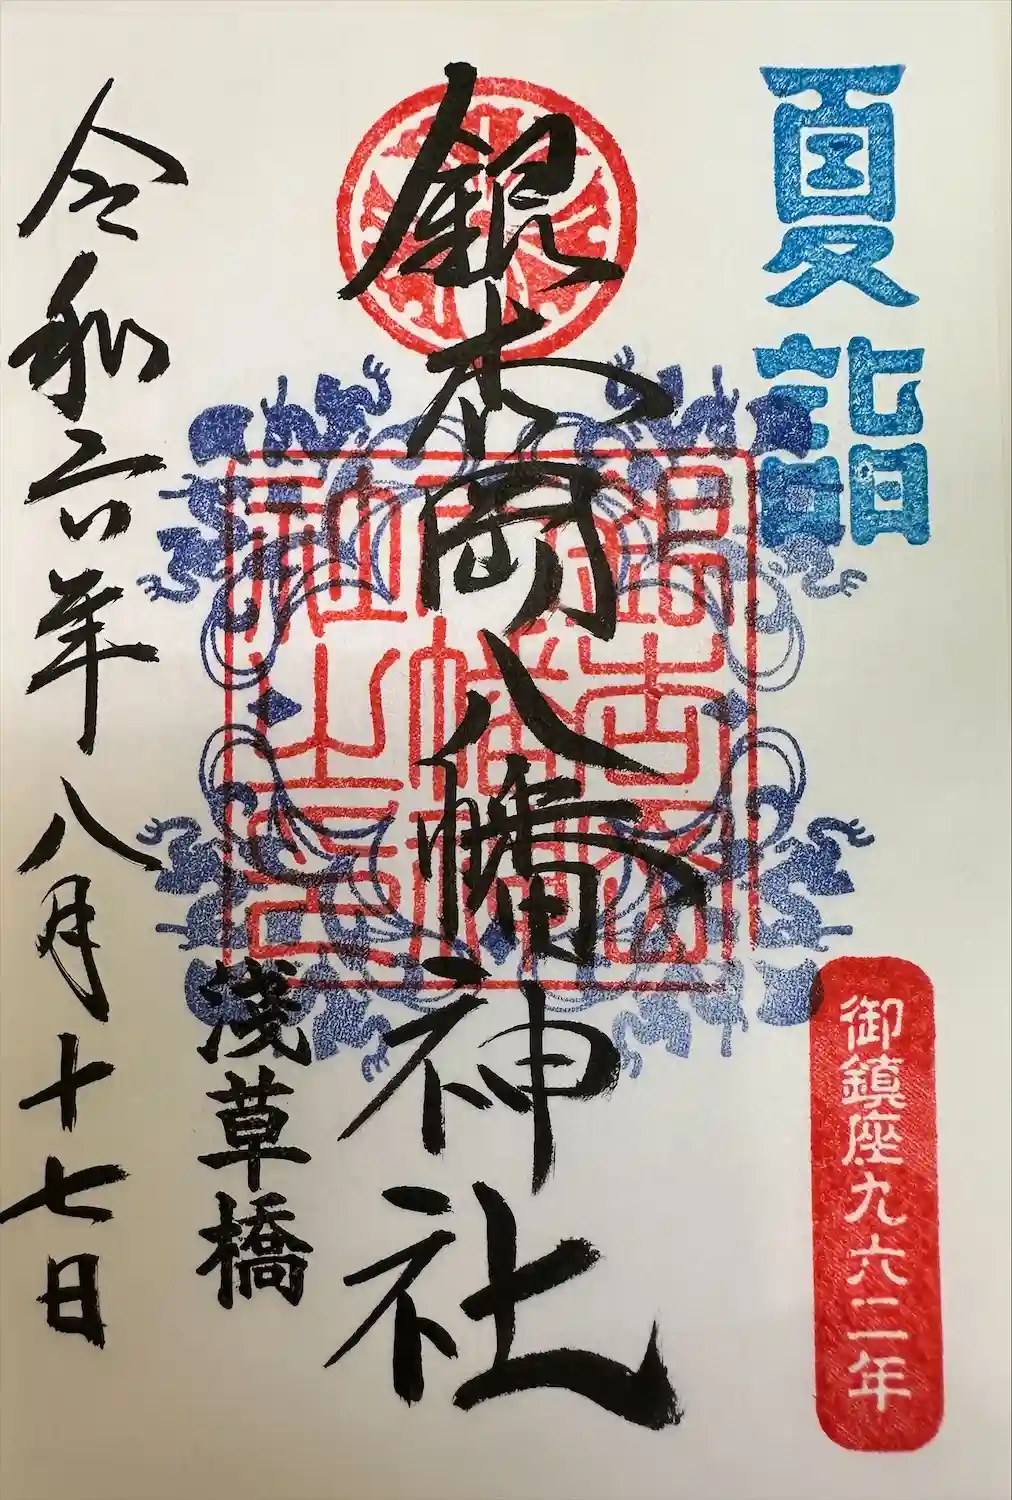 夏詣
御鎮座九六二年
銀杏岡八幡神社
銀杏岡
八幡神
社之
浅草橋
令和六年八月十七日